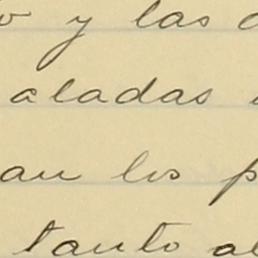 y las
aladas
an los p
tanto al